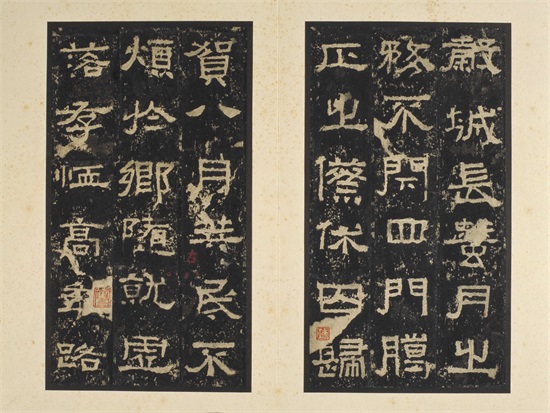 穀城長蠶月之
務不閉四門臘
正之僚休囚歸
賀八月筭民不
煩於鄉隨就虛
落存恤高年路